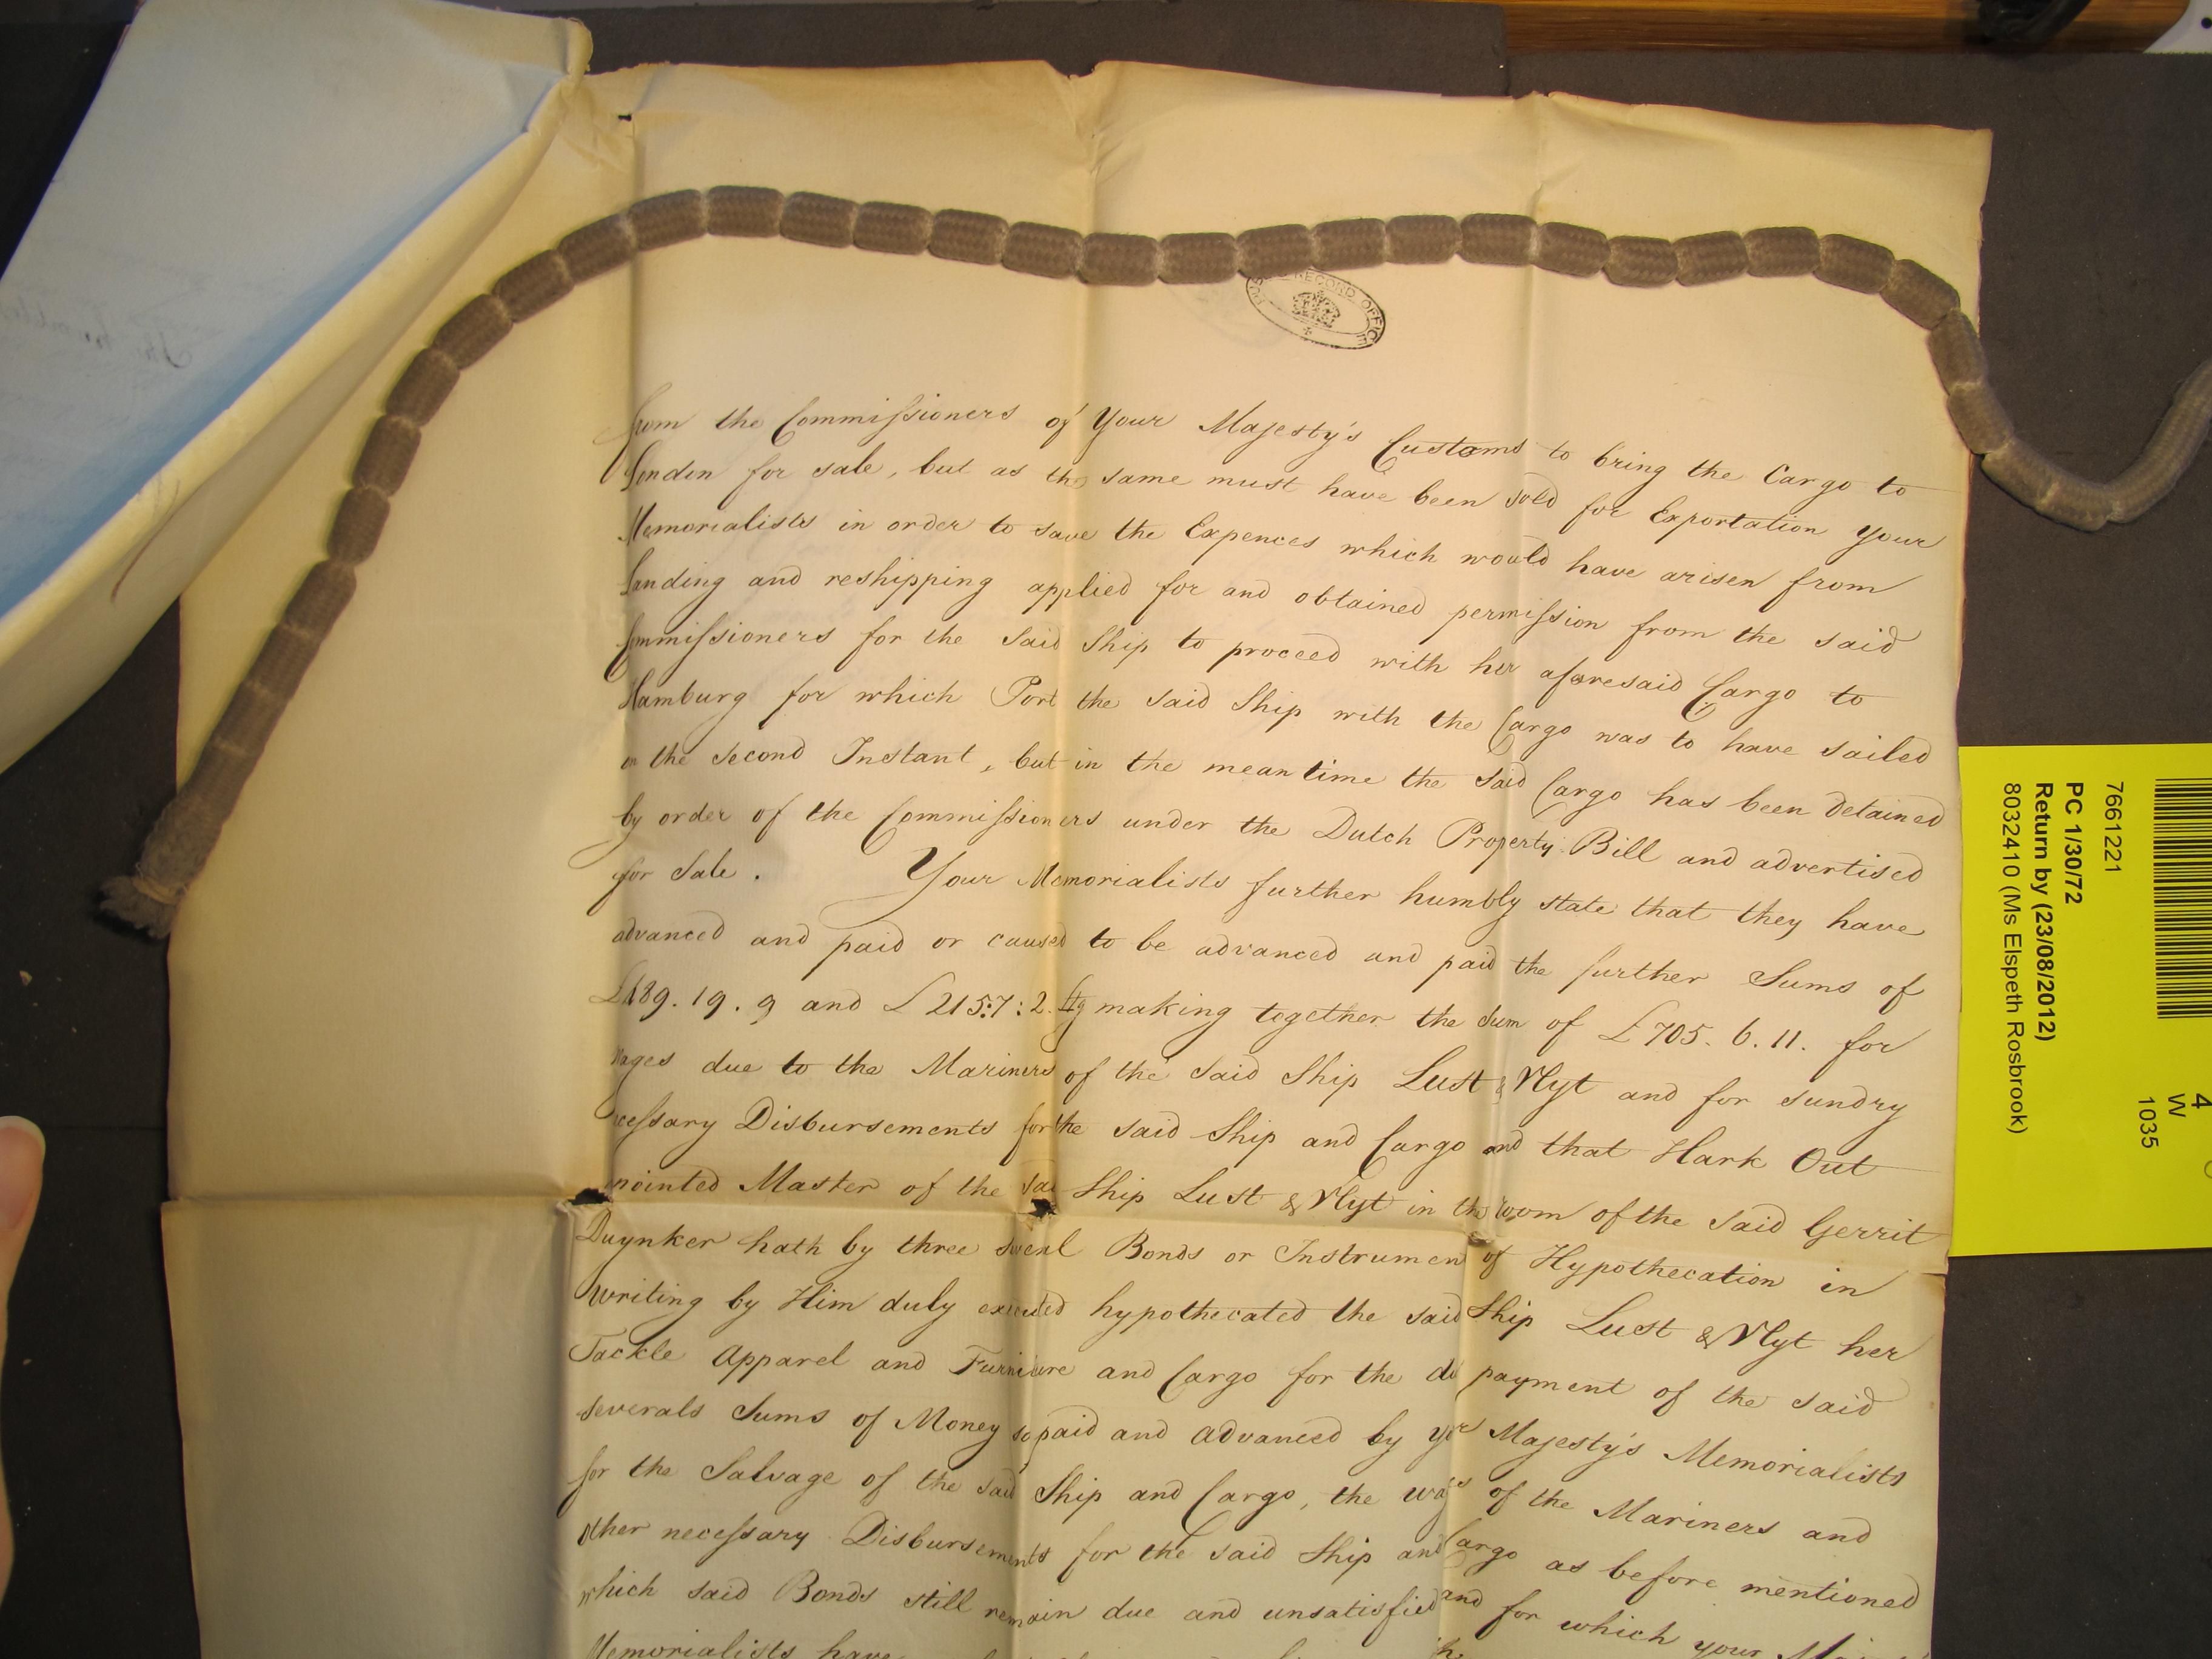 PUBLIC RECORD OFFICE
from the Commissioners of Your Majesty's Customs to bring the Cargo to
London for sale, but as the same must have been sold for Exportation your
Memorialists in order to save the Expences which would have arisen from
Landing and reshipping applied for and obtained permission from the said
Commissioners for the said Ship to proceed with her aforesaid Cargo to
Hamburg for which Port the said Ship with the Cargo was to have sailed
on the second Instant, but in the mean time the said Cargo has been detained
by order of the Commissioners under the Dutch Property Bill and advertised
for Sale. Your Memorialists further humbly state that they have
advanced and paid or caused to be advanced and paid the further Sums of
£489. 19. 9 and £215:7:2. Stg making together the sum of £705. 6. 11. for
Wages due to the Mariners of the said Ship Lust & Vlyt and for sundry
necessary Disbursements for the said Ship and Cargo and that Hark Out
appointed Master of the said Ship Lust & Vlyt in the room of the said Gerrit
Duynker hath by three several Bonds or Instrumen of Hypothecation in
writing by Him duly executed hypothecated the said Ship Lust & Vlyt her
Tackle Apparel and Furniture and Cargo for the du payment of the said
severals Sums of Money so paid and advanced by yr Majesty's Memorialists
for the Salvage of the said Ship and Cargo, the wages of the Mariners and
other necessary Disbursements for the said Ship and Cargo as before mentioned
which said Bonds still remain due and unsatisfied and for which your
Memorialists have
7661221
PC 1/30/72
Return by (23/08/2012)
8032410 (Ms Elspeth Rosbrook)
4
W
1035